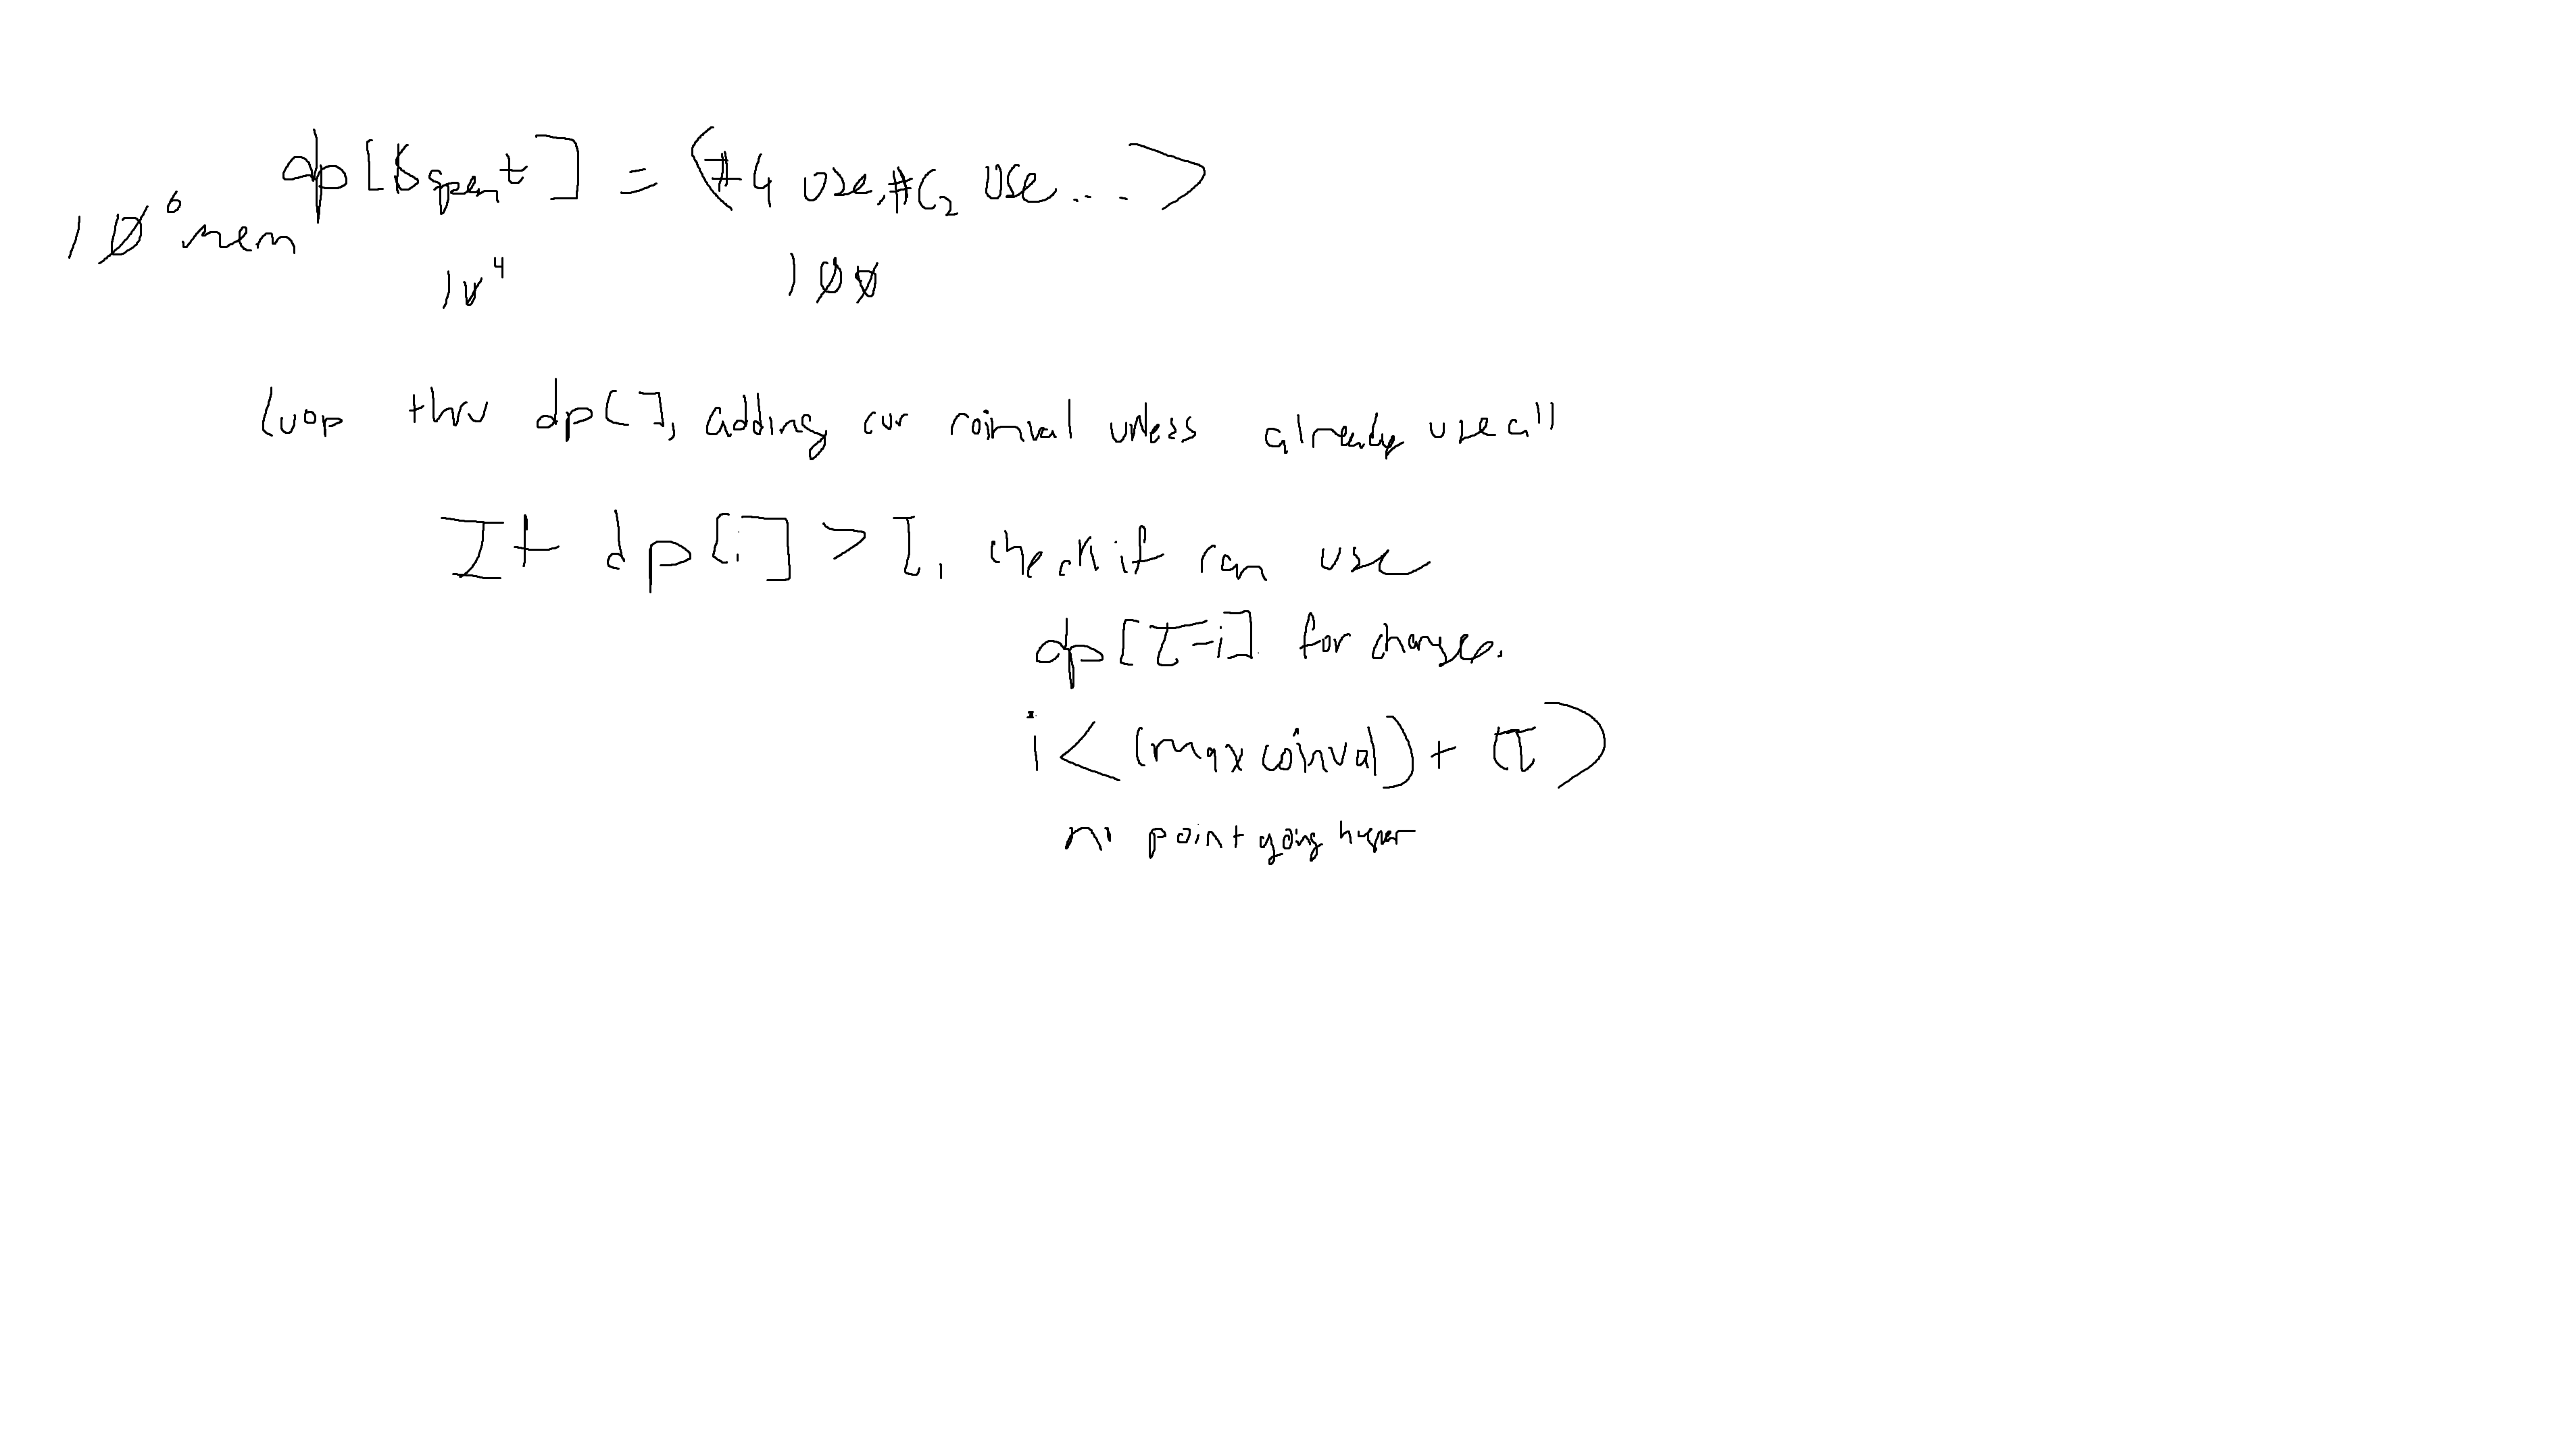 dp[$spent] = (#C1 use, #C2 use... >
10^6 mem
10^4 100
loop thru dp[], adding cur coinval unless already use all
If dp[i] > T, check if can use
dp[T-i] for changes.
i < (max coinval) + (T)
no point going higher